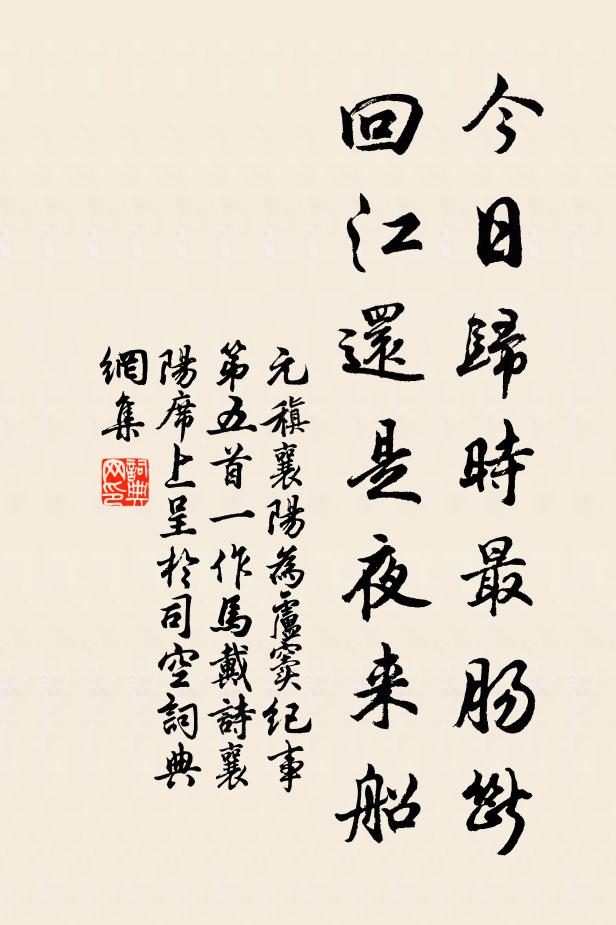 今日歸時最肠斷
回江還是夜来船
元稹襄陽為盧竇纪事
第五首一作馬戴詩襄
陽席上呈於司空詞典
網集
詞典
网印